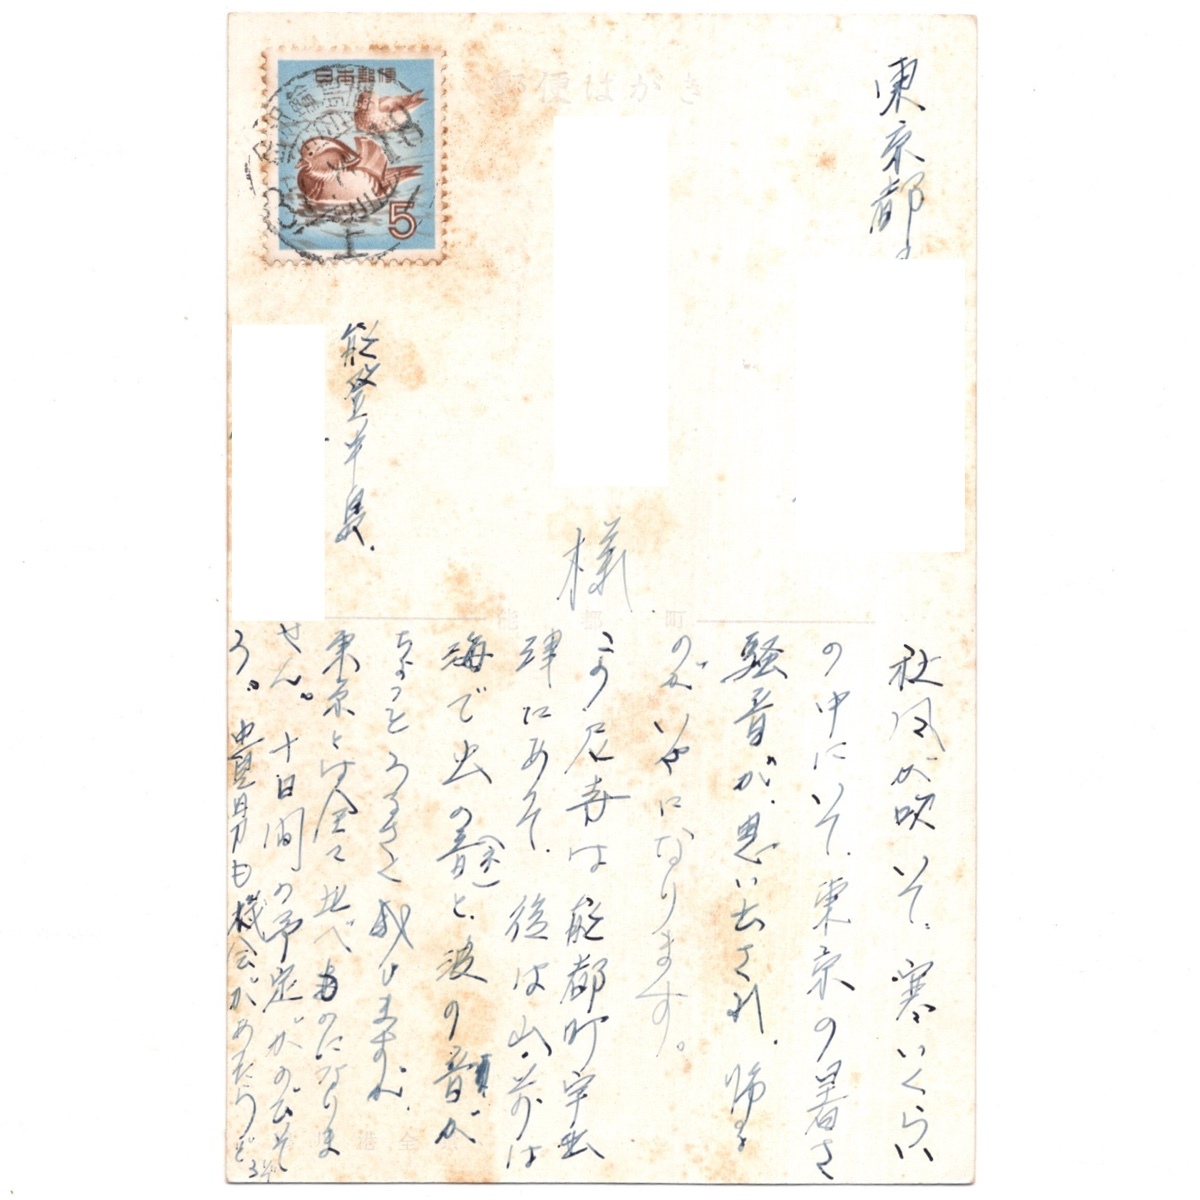 郵便はがき
日本郵便
5
東京都
様
能登中島
能都町
秋風が吹いて、寒いくらい
の中にいて、東京の暑さ
騒音が、思い出され、帰る
のがいやになります。
この尼寺は能都町宇出
津にあって、後は山・前は
海で虫の音と、波の音が
ちょっとうるさく感ひますが、
東京とは全く比べものになりま
せん。十日間の予定がのびそ
う。貴男も機会があたらどう